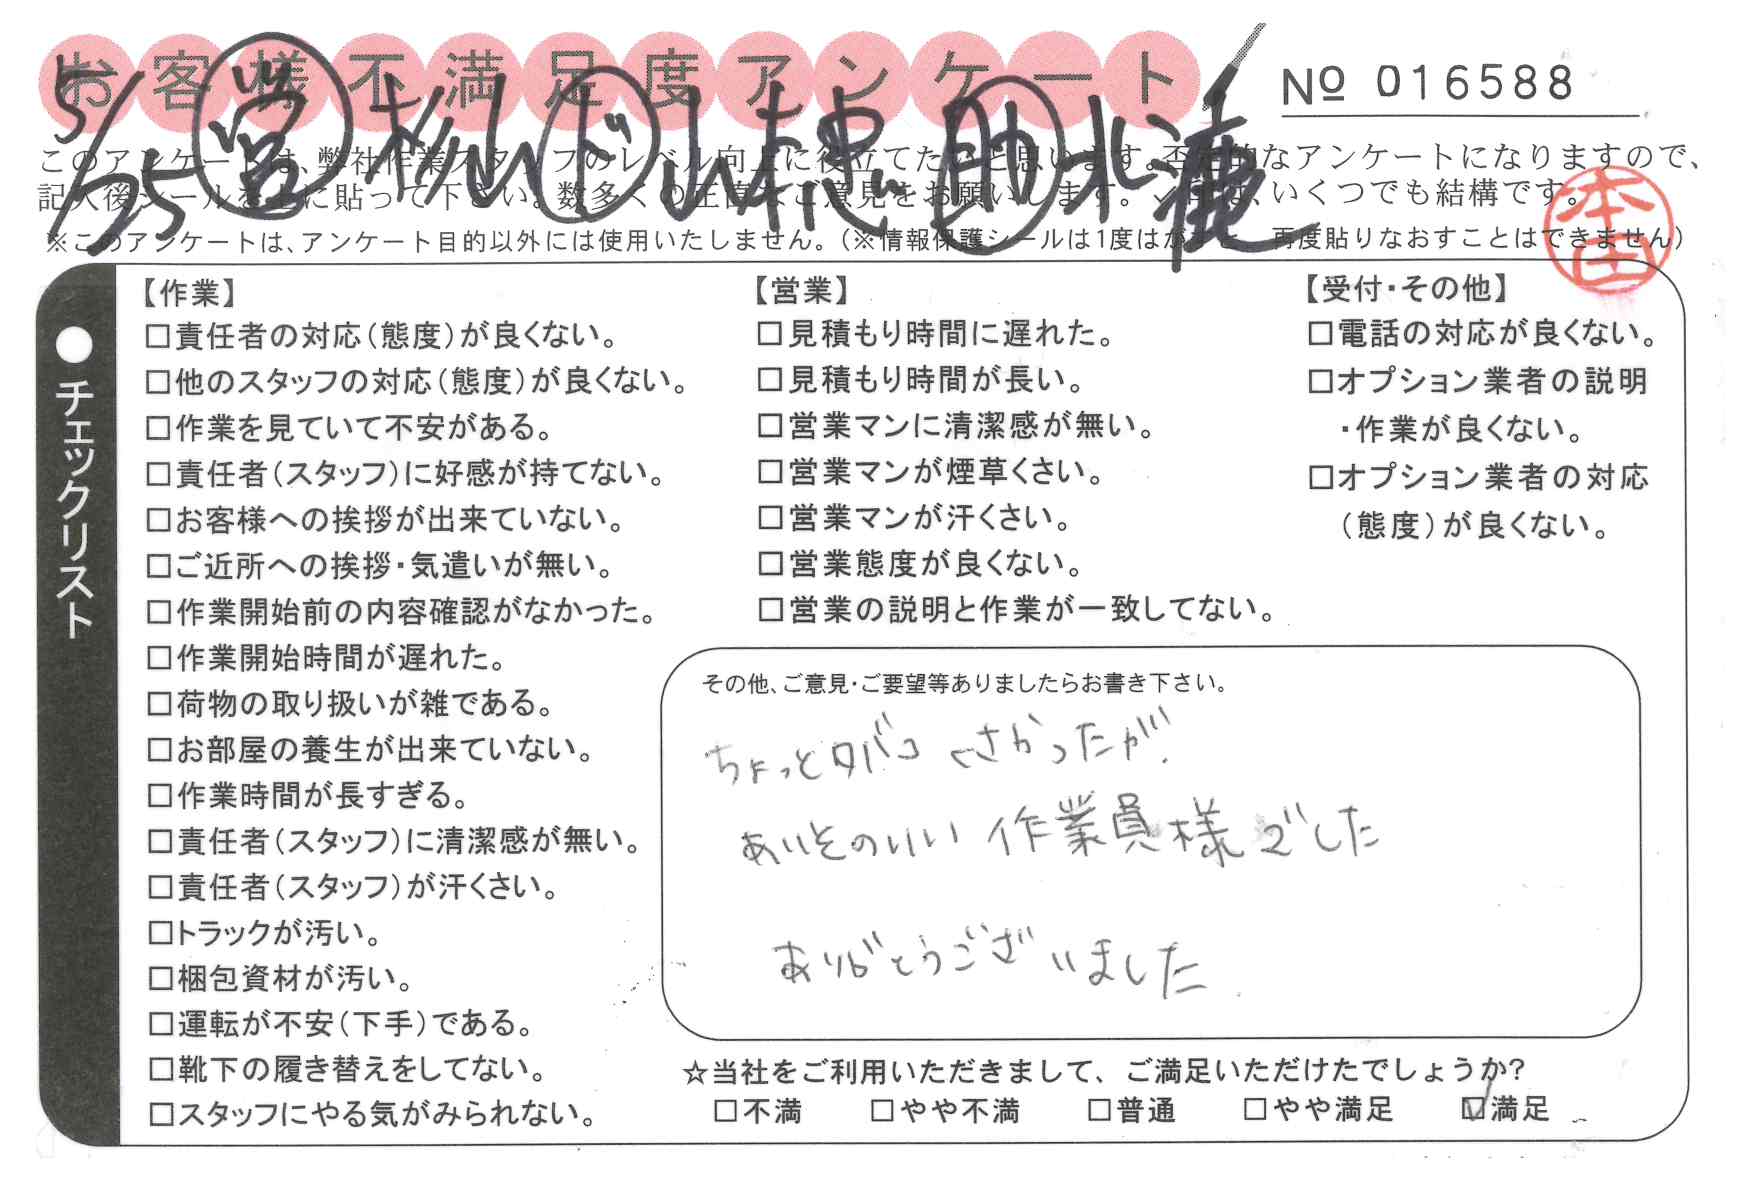 お客様不満足度アンケート
№ 016588
5/25 営 松山 ド 山本聴 助 北瀧
このアンケートは、弊社作業スタッフのレベル向上に役立てたいと思います。否定的なアンケートになりますので、
記入後シールを上に貼って下さい。数多くの正直なご意見をお願いします。✓印は、いくつでも結構です。
※このアンケートは、アンケート目的以外には使用いたしません。(※情報保護シールは1度はがすと、再度貼りなおすことはできません)
本田
●チェックリスト
【作業】
□責任者の対応(態度)が良くない。
□他のスタッフの対応(態度)が良くない。
□作業を見ていて不安がある。
□責任者(スタッフ)に好感が持てない。
□お客様への挨拶が出来ていない。
□ご近所への挨拶・気遣いが無い。
□作業開始前の内容確認がなかった。
□作業開始時間が遅れた。
□荷物の取り扱いが雑である。
□お部屋の養生が出来ていない。
□作業時間が長すぎる。
□責任者(スタッフ)に清潔感が無い。
□責任者(スタッフ)が汗くさい。
□トラックが汚い。
□梱包資材が汚い。
□運転が不安(下手)である。
□靴下の履き替えをしてない。
□スタッフにやる気がみられない。
【営業】
□見積もり時間に遅れた。
□見積もり時間が長い。
□営業マンに清潔感が無い。
□営業マンが煙草くさい。
□営業マンが汗くさい。
□営業態度が良くない。
□営業の説明と作業が一致してない。
【受付・その他】
□電話の対応が良くない。
□オプション業者の説明
・作業が良くない。
□オプション業者の対応
(態度)が良くない。
その他、ご意見・ご要望等ありましたらお書き下さい。
ちょっとタバコくさかったが、
あいそのいい作業員様でした
ありがとうございました
☆当社をご利用いただきまして、ご満足いただけたでしょうか?
□不満 □やや不満 □普通 □やや満足 ☑満足